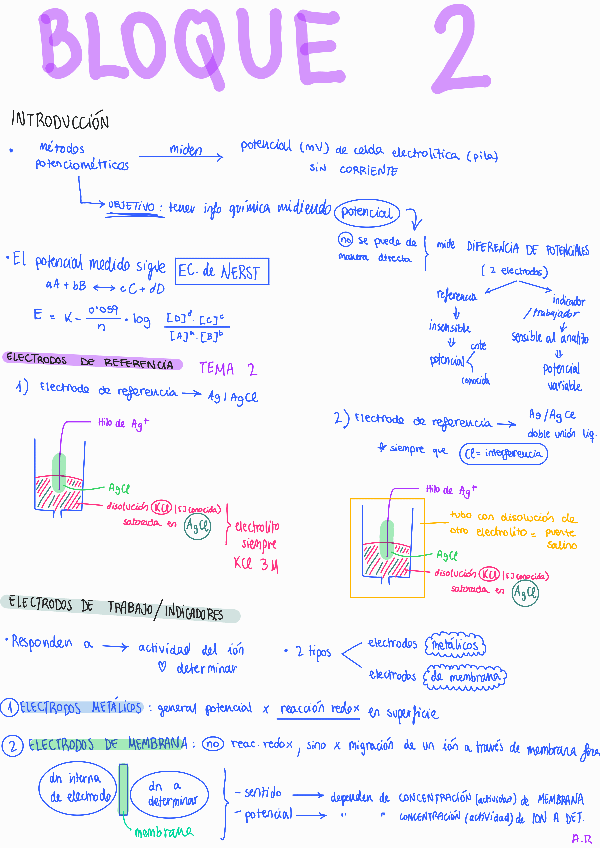 BLOQUE 2
INTRODUCCIÓN
• métodos potenciométricos → miden → potencial (mV) de celda electrolítica (pila)
SIN CORRIENTE
→ OBJETIVO: tener info química midiendo potencial
no se puede de manera directa
mide DIFERENCIA DE POTENCIALES
(2 electrodos)
referencia
insensible
potencial cnte
conocida
indicador
/trabajador
sensible al analito
potencial
variable
• El potencial medido sigue EC. de NERST
aA + bB ↔ cC + dD
E = K - 0'059/n · log [D]ᵈ·[C]ᶜ / [A]ᵃ·[B]ᵇ
ELECTRODOS DE REFERENCIA TEMA 2
1) Electrodo de referencia → Ag/AgCl
Hilo de Ag⁺
AgCl
disolución KCl ([] conocida)
saturada en AgCl
electrolito
siempre
KCl 3M
2) Electrodo de referencia → Ag/AgCl
doble unión líq.
* siempre que Cl = interferencia
Hilo de Ag⁺
tubo con disolución de
otro electrolito = puente
salino
AgCl
disolución KCl ([] conocida)
saturada en AgCl
ELECTRODOS DE TRABAJO/INDICADORES
• Responden a → actividad del ión
♡ determinar
• 2 tipos
electrodos metálicos
electrodos de membrana
1 ELECTRODOS METÁLICOS: general potencial x reacción redox en superficie
2 ELECTRODOS DE MEMBRANA: no reac. redox, sino x migración de un ión a través de membrana
dn interna
de electrodo
dn a
determinar
membrana
- sentido → dependen de CONCENTRACIÓN (actividad) de MEMBRANA
- potencial → " " CONCENTRACIÓN (actividad) de ION A DET.
A.R